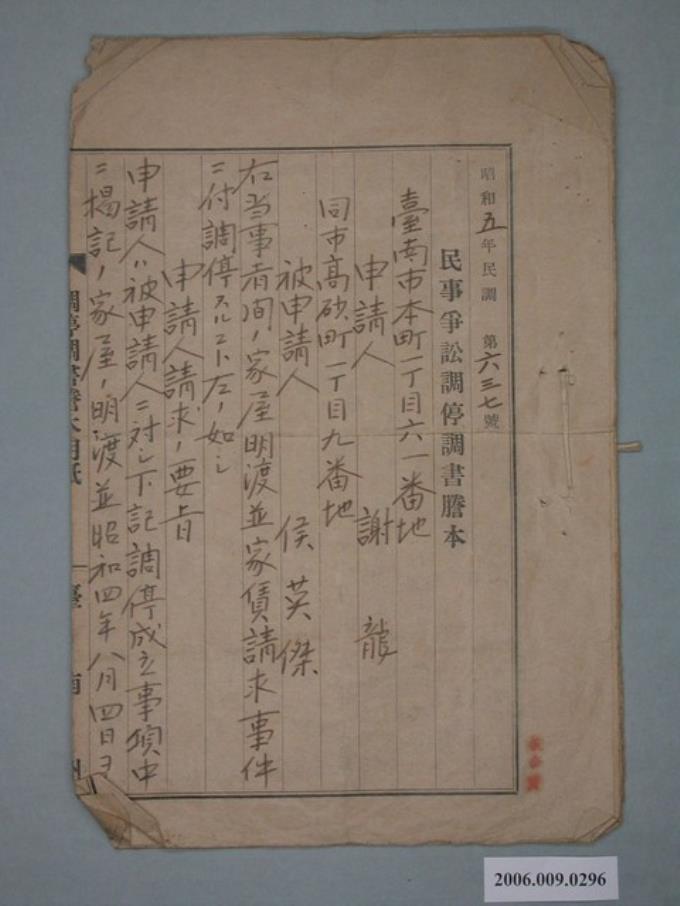 昭和五年民調 第六三七號
民事爭訟調停調書謄本
臺南市本町一丁目六一番地
申請人 謝 龍
同市高砂町一丁目九番地
被申請人 侯英傑
右当事者間ノ家屋明渡並家賃請求事件
ニ付調停スルコト左ノ如シ
申請人請求ノ要旨
申請人ハ被申請人ニ対シ下記調停成立事項中
ニ揭記ノ家屋ノ明渡並昭和四年八月四日ヨ
調停調書謄本用紙 臺南州
2006.009.0296